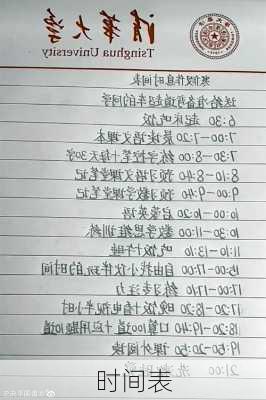 清华大学
Tsinghua University
寒假作息时间表
送给准备弯道超车的同学
6:30 起床吃饭
7:00-7:20 晨读语文课本
7:30-8:00 练字控笔+每天30字
8:10-8:40 预习语文课堂笔记
9:00-9:40 预习数学课堂笔记
10:00-10:20 启蒙英语
10:30-11:00 数学思维训练
11:10-13:10 吃饭午睡
15:00-17:00 自由找小伙伴玩的时间
17:00 练习专注力
17:20-18:30 晚饭+看电视半小时
18:20-19:40 口算100道+应用题10道
19:50-20:50 课外阅读
21:00 洗漱
时间表